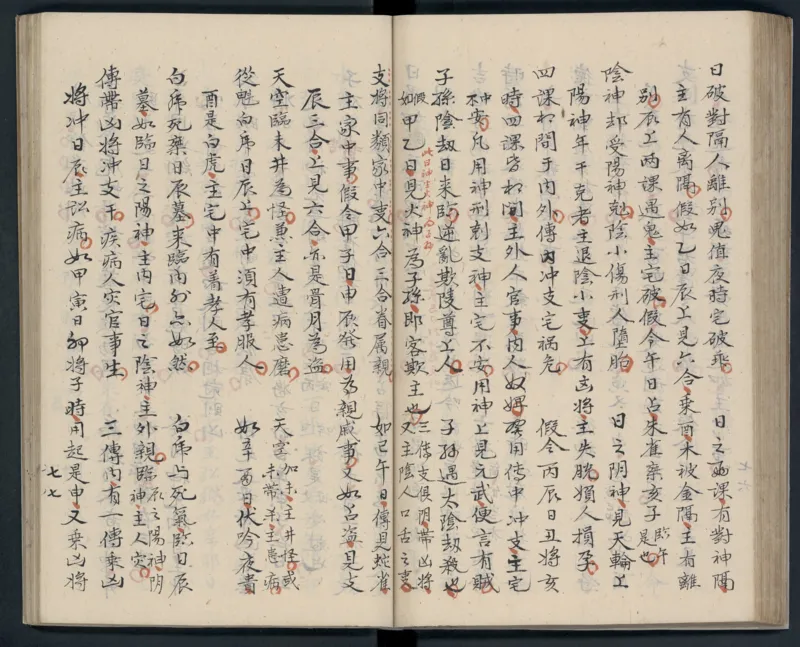 日破對隔人離別鬼值夜時宅破乖　日之兩課有對神隔
主有人离隔假如乙日辰上見六合乘酉未被金隔主有離
別辰上两課遇鬼主宅破假令午日占朱雀乘亥子臨午是也
陰神却受陽神尅陰小傷刑人墮胎　日之阴神見天輪上
陽神年干克者主退陰小支上有凶將主失脫損人損孕
四課相間于內外傳內冲支宅禍危　假令丙辰日丑將亥
時四課皆相間主外人官事內人奴婢𥘉用傳中冲支主宅
不安凡用神刑剋支神主宅不安用神上見元武便言有賊
子孫陰刼日来臨逆亂欺陵尊上人　子孫遇太陰刼殺也
此日神生火神為子孫
假如甲乙日見火神為子孫即客欺主也　三傳支俱阴帶凶將又主陰人口舌之事
支將同類家中支六合三合眷属親　如己午日傳見蛇雀
主家中事假令甲子日申辰發用為親戚事又如占盜見支
辰三合上見六合亦是骨月為盜
天空臨未井為怪兼主人遣病患磨　天空加未主井怪或未帶杀主患病
從魁白虎日辰上宅中須有孝服人　如辛酉日伏吟夜書
酉是白虎主宅中有着孝人至
白虎死棄日辰墓来臨內外亦如然　白虎与死氣臨日辰
墓如臨日之陽神主內宅日之陰神主外親臨辰之陽神阴神主人灾
傳帶凶將冲支干疾病人灾官事生　三傳內有一傳乘凶
將冲日辰主訟病如甲寅日卯將子時用起是申又乘凶將
七七